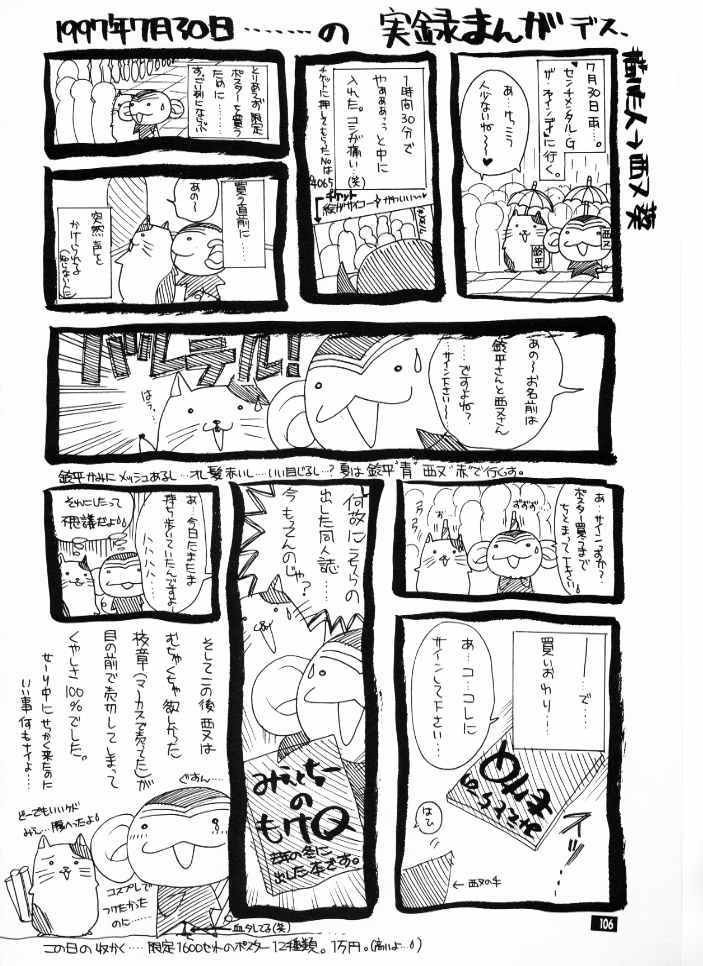 1997年7月30日………の 実録まんがデス、
描いた人→西又葵
7月30日雨…。
センチメンタルG
が"ネインディ"に
行く。
あ…けっこう
人少ないね〜♥
鈴平
西又
1時間30分で
やぁぁぁっっと中に
入れた。コシが痛い…(笑)
チケットに押してもらったNoは
4065
チケット
絵がサイコー かわいい〜
とりあえず限定
ポスターを買う
ために……
すっごい列にならぶ
買う直前に…
あの〜
突然声を
かけられる
(知らない人に)
あの〜お名前は
鈴平さんと西又さん
……ですよね?
サイン下さい〜
バルテル!
はうっ…
鈴平かみにメッシュあるし…オレ髪赤いし…いい目じるし…?夏は鈴平"青"西又"赤"で行くっす。
あ…サインっすか?
ポスター買うまで
ちとまって下さい。
ーーで…
買いおわり…
あ…コ…コレに
サインして下さい…
みえとらーのもけQ
スッ…
はひ
←西又の手
何故にうちらの
出した同人誌……
今もってんのじゃ?
みえとらー
の
もけQ
去年の冬に
出した本です。
あ…今日たまたま
持ち歩いていたんですよー
ハハハハ…
それにしたって
不思議だよ
そしてこの後西又は
むちゃくちゃ欲しかった
校章(マーカスで売ってた)が
目の前で売切してしまって
くやしさ100%でした。
せーり中にせっかく来たのに
いい事何もナイよ……
ぐすん…
どーでもいいケド
みぅ…腹へったよ
コスプレで
つけたかった
のに……
←血タレてる(笑)
この日の収かく……限定1600セットのポスター12種類。1万円。(高いよ…)
106